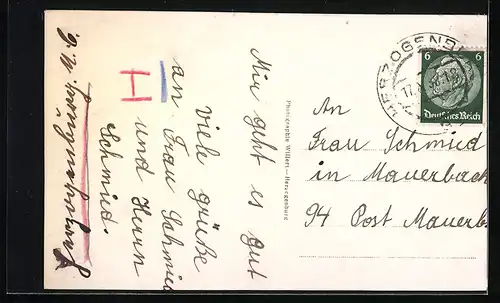 Mir geht es gut
viele grüße
an Frau Schmied
und Herrn
Schmied.
Photographie Willert – Herzogenburg
HERZOGENBU
6 6
Deutsches Reich
An
Frau Schmied
in Mauerbach
94 Post Mauerb